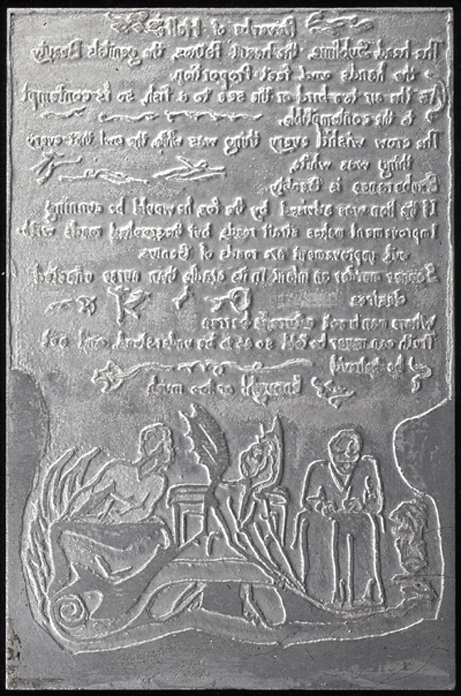 Proverbs of Hell
The head Sublime, the heart Pathos, the genitals Beauty
the hands and feet Proportion.
As the air to a bird or the sea to a fish, so is contempt
to the contemptible.
The crow wish'd every thing was black, the owl, that every
thing was white.
Exuberance is Beauty.
If the lion was advised by the fox, he would be cunning
Improvement makes strait roads, but the crooked roads with
out Improvement are roads of Genius.
Sooner murder an infant in its cradle than nurse unacted
desires
Where man is not nature is barren
Truth can never be told so as to be understood, and not
be believ'd
Enough! or Too much